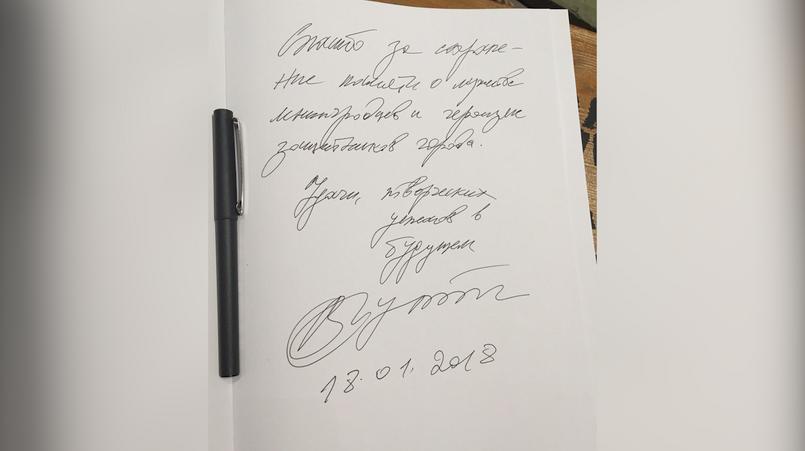 Спасибо за сохране-
ние памяти о мужестве
ленинградцев и героизме
защитников города.
Удачи, творческих
успехов в
будущем
ВПутин
18.01.2018